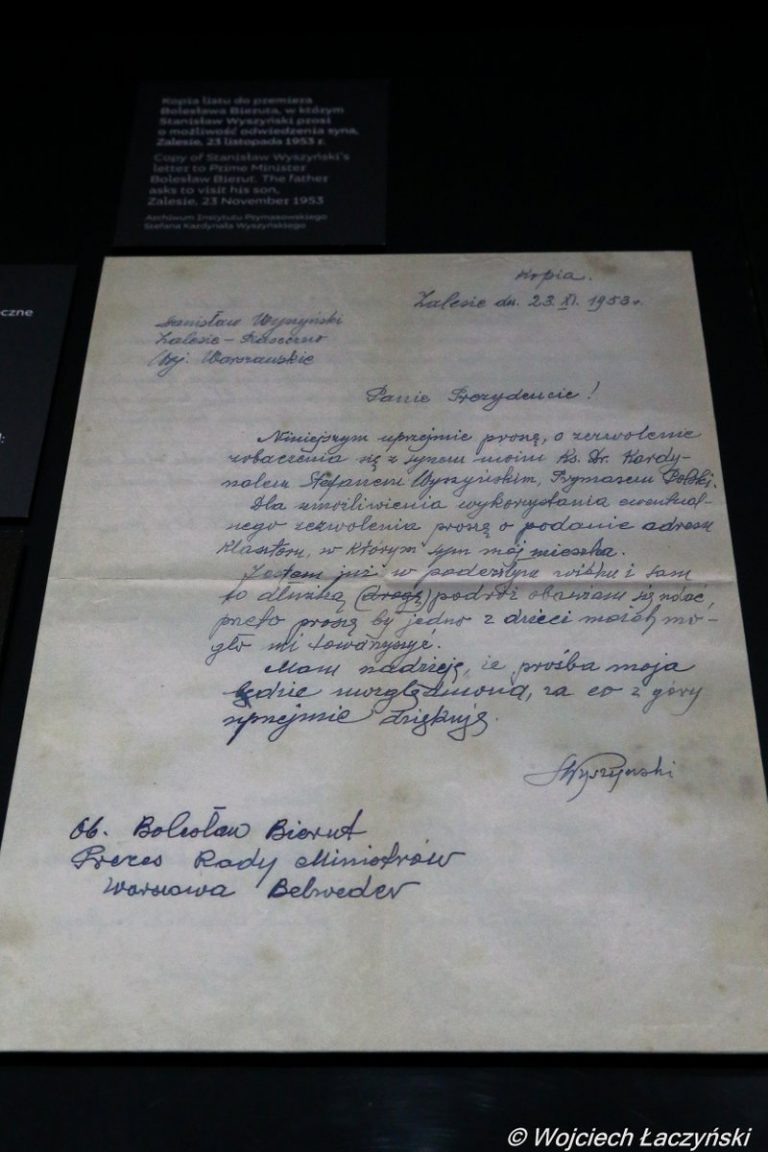 Kopia listu do premiera
Bolesława Bieruta, w którym
Stanisław Wyszyński prosi
o możliwość odwiedzenia syna,
Zalesie, 23 listopada 1953 r.
Copy of Stanisław Wyszyński's
letter to Prime Minister
Bolesław Bierut. The father
asks to visit his son,
Zalesie, 23 November 1953
Archiwum Instytutu Prymasowskiego
Stefana Kardynała Wyszyńskiego
czne
Kopia.
Zalesie dn. 23.XI. 1953 r.
Stanisław Wyszyński
Zalesie – Piaseczno
Woj. Warszawskie
Panie Prezydencie!
Niniejszym uprzejmie proszę, o zezwolenie
zobaczenia się z synem moim Ks. Dr. Kardy-
nałem Stefanem Wyszyńskim, Prymasem Polski.
Dla umożliwienia wykorzystania ewentual-
nego zezwolenia proszę o podanie adresu
klasztoru, w którym syn mój mieszka.
Jestem już w podeszłym wieku i sam
to dłuższą (drogę) podróż obawiam się udać,
przeto proszę by jedno z dzieci moich mo-
gło mi towarzyszyć.
Mam nadzieję, że prośba moja
będzie uwzględniona, za co z góry
uprzejmie dziękuję.
SWyszyński
Ob. Bolesław Bierut
Prezes Rady Ministrów
Warszawa Belweder
© Wojciech Łaczyński